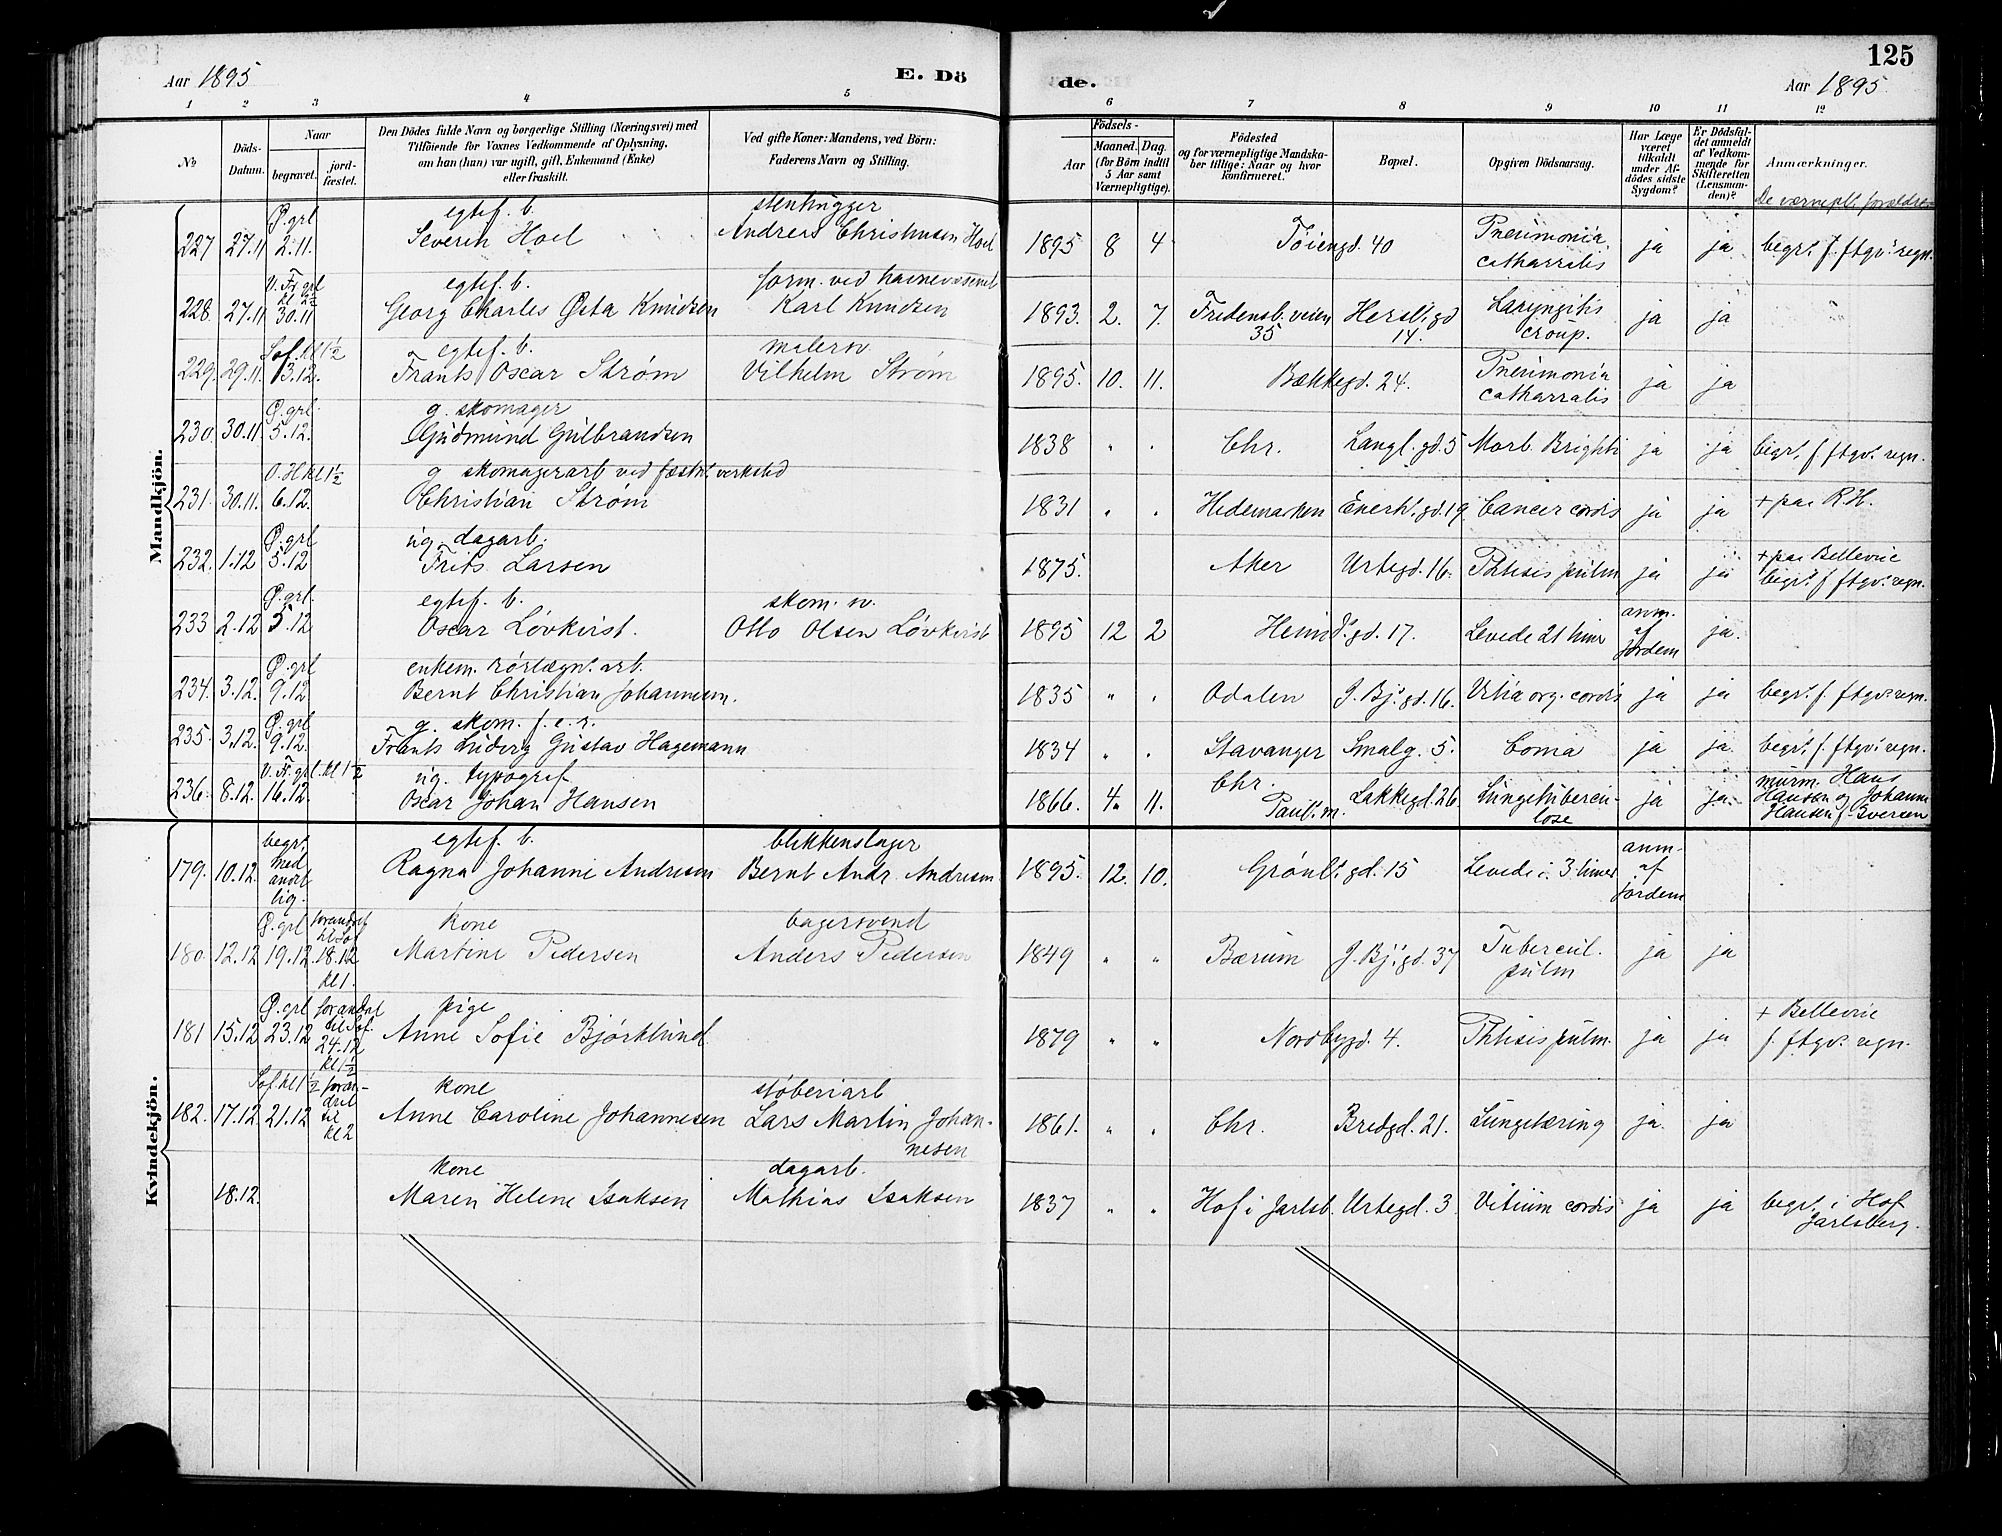 125
Aar 1895
E. Dö
de.
Aar 1895
1 2 3 4 5 6 7 8 9 10 11 12
No
Döds-
Datum.
Naar
begravet.
jord-
fæstet.
Den Dödes fulde Navn og borgerlige Stilling (Næringsvei) med
Tilföiende for Voxnes Vedkommende af Oplysning,
om han (hun) var ugift, gift, Enkemand (Enke)
eller fraskilt.
Ved gifte Koner: Mandens, ved Börn:
Faderens Navn og Stilling.
Födsels-
Aar
Maaned. Dag.
(for Börn indtil
5 Aar samt
Værnepligtige).
Födested
og for værnepligtige Mandska-
ber tillige: Naar og hvor
konfirmeret.
Bopæl.
Opgiven Dödsaarsag.
Har Læge
været
tilkaldt
under Af-
dödes sidste
Sygdom?
Er Dödsfal-
det anmeldt
af Vedkom-
mende for
Skifteretten
(Lensman-
den)?
Anmærkninger.
De værnepl. forældre
Mandkjön.
Ø. grl egtef. b. stenhugger
227 27.11 2.11. Severin Hoel Andreas Christiusen Hoel 1895 8 4 Töiengd. 40 Pneumonia catharralis ja ja begr. f. ftgv. regn.
V. Fr. grl kl 2½ egtef. b. form. ved havnevæsenet
228. 27.11 30.11 Georg Charles Østa Knudsen Karl Knudsen 1893. 2. 7. Fredensb.veien 35 Hersl. gd 14. Laryngitis croup. ja ja
Sof. kl 1½ egtef. b. malersv.
229. 29.11. 3.12. Frants Oscar Strøm Vilhelm Strøm 1895. 10. 11. Bækkegd. 24. Pneumonia catharralis ja ja
Ø. grl. g. skomager
230. 30.11. 5.12. Gudmund Gulbrandsen 1838 " " Chr. Langl. gd. 5 Morb. Brighti ja ja begr. f ftgv. regn.
O. H kl 1½ g skomagerarb ved fæstn. verksted
231. 30.11. 6.12. Christian Strøm 1831 " " Hedemarken Enerh. gd. 19 Cancer cordis ja ja + paa R.H.
Ø. grl ug. dagarb.
232. 1.12 5.12 Frits Larsen 1875. Aker Urtegd. 16. Phtisis pulm ja ja + paa Bellevue begr. f ftgv. regn.
Ø. grl. egtef. b. skom. sv.
233 2.12 5.12 Oscar Lövkvist. Otto Olsen Lövkvist 1895 12 2 Heimd. gd. 17. Levede 21 timer anm. af jordem ja.
Ø. grl enkem. rörlægn. arb.
234. 3.12. 9.12 Bernt Christian Johannesen. 1835 " " Odalen J. Bj. gd. 16. Vitia org. cordis ja ja begr. f. ftgv. regn.
Ø. grl g. skom. f. e. r.
235. 3.12. 9.12. Frants Ludvig Gustav Hagemann 1834 " " Stavanger Smalg. 5. Coma ja ja. begr. f. ftgv. regn.
V. Fr. grl. kl 1½ ug. typograf
236. 8.12. 16.12. Oscar Johan Hansen 1866. 4. 11. Chr. Paul. m. Lakkegd. 26 Lungetubercu-
lose ja ja. murm. Hans Hansen og Johanne Hansen f. Iversen
Kvindekjön.
egtef. b. blikkenslager
179. 10.12. begr. med andet lig. Ragna Johanne Andresen Bernt Andr. Andresen 1895. 12. 10. Grönl. gd. 15 Levede i 3 timer anm. af jordem
Ø. grl forandret til Sof kone bagersvend
180. 12.12 19.12. 18.12 kl 1. Martine Pedersen Anders Pedersen 1849 " " Bærum J. Bj. gd. 37 Tubercul. pulm ja ja
Ø. grl forandret til Sof. pige
181 15.12 23.12 24.12 kl 1½ Anne Sofie Bjørklund 1879 " " Nordbygd. 4. Phtisis pulm. ja ja + Bellevue f. ftgv. regn.
Sof kl 1½ foran-
dret til kl 2 kone støberiarb
182. 17.12. 21.12 Anne Caroline Johannesen Lars Martin Johan-
nesen 1861. " " Chr. Bredgd. 21. Lungetæring ja. ja
kone dagarb.
18.12. Maren Helene Isaksen Mathias Isaksen 1837 " " Hof i Jarlsb. Urtegd. 3 Vitium cordis ja ja begr. i Hof Jarlsberg.